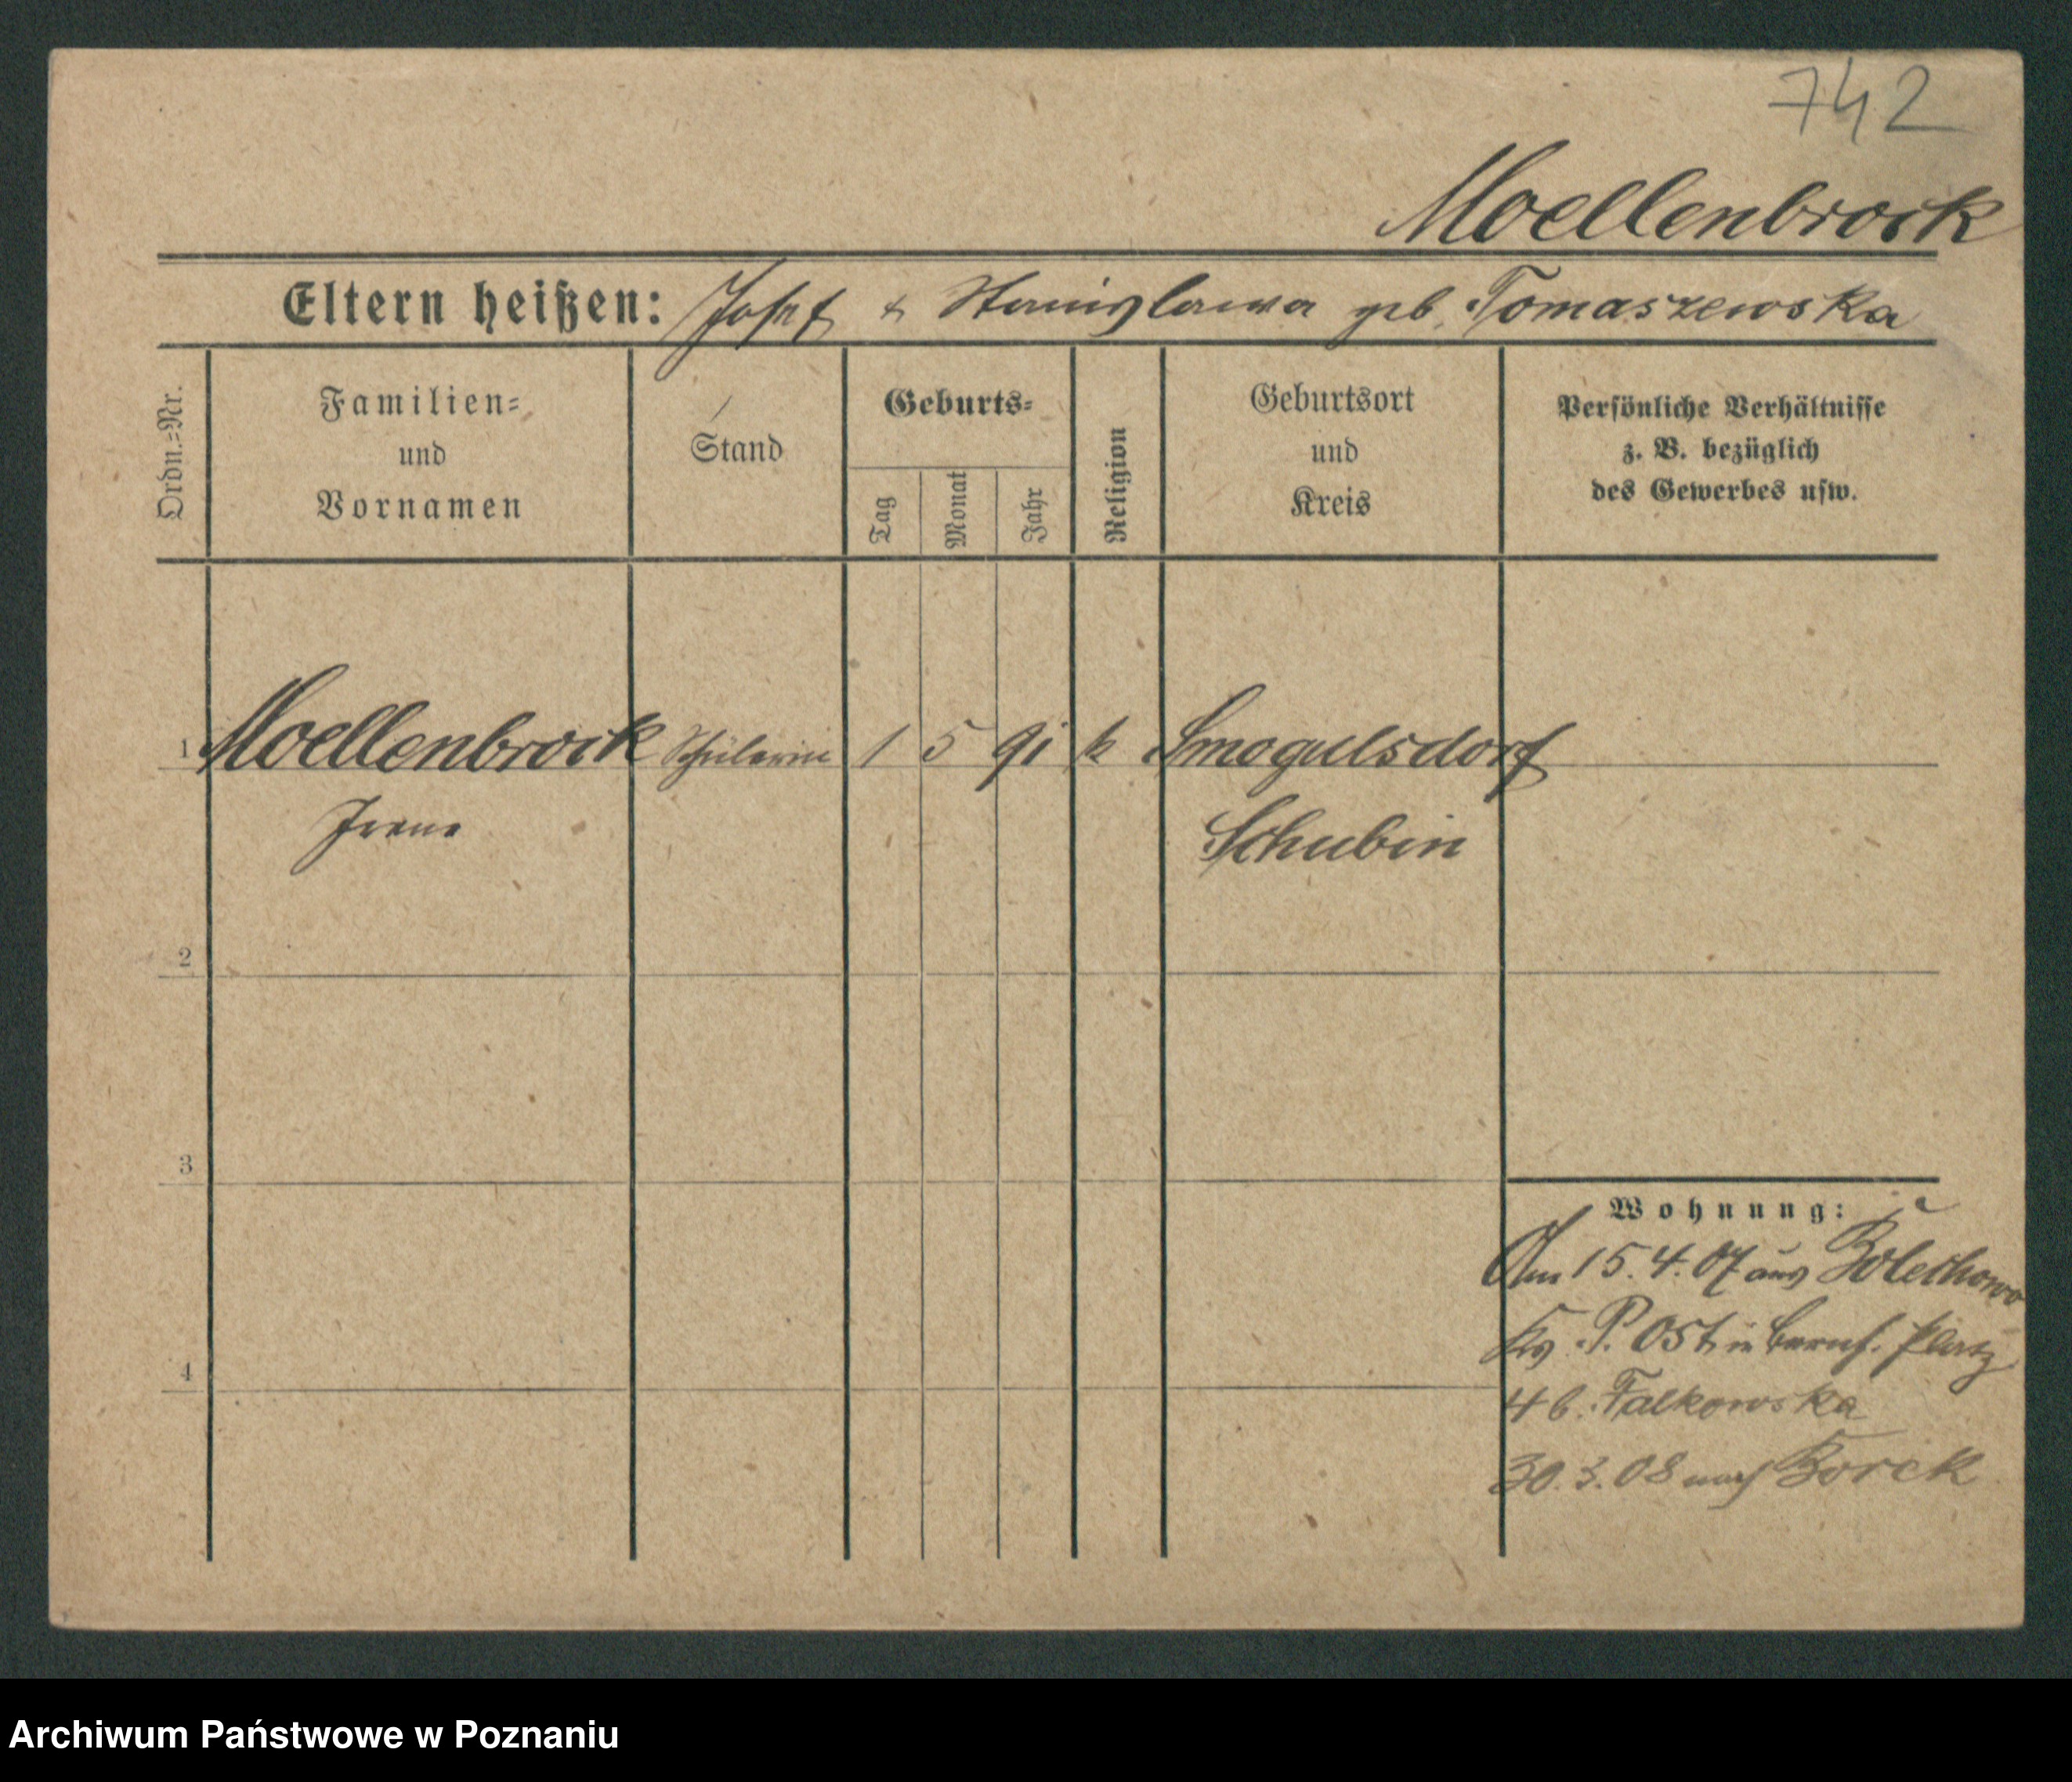 742
Moellenbrock
Eltern heißen: Josef & Stanislawa geb. Tomaszewska
Ordn.=Nr.
Familien=
und
Vornamen
Stand
Geburts=
Tag
Monat
Jahr
Religion
Geburtsort
und
Kreis
Persönliche Verhältnisse
z. B. bezüglich
des Gewerbes usw.
1 Moellenbrock Schülerin 1 5 91 k Smogulsdorf
Irene Schubin
2
3
Wohnung:
Am 15.4.07 aus Bolechowo
Krs P. Ost in Bernh. Platz
4
4 b. Falkowska
30.3.08 nach Borek
Archiwum Państwowe w Poznaniu